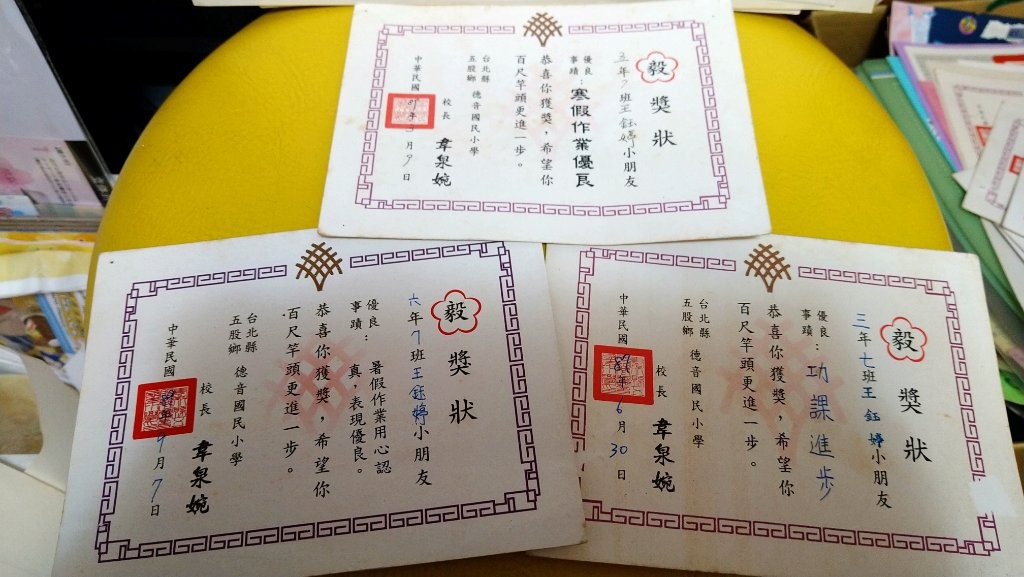 毅 獎狀
五年7班王鈺婷小朋友
優良
事蹟：寒假作業優良
恭喜你獲獎，希望你
百尺竿頭更進一步。
台北縣
五股鄉 德音國民小學
校長 韋泉婉
中華民國 年 月 9 日
毅 獎狀
六年7班王鈺婷小朋友
優良
事蹟： 暑假作業用心認
真，表現優良。
恭喜你獲獎，希望你
百尺竿頭更進一步。
台北縣
五股鄉 德音國民小學
校長 韋泉婉
中華民國 年 9 月 7 日
毅 獎狀
三年七班王鈺婷小朋友
優良
事蹟：功課進步
恭喜你獲獎，希望你
百尺竿頭更進一步。
台北縣
五股鄉 德音國民小學
校長 韋泉婉
中華民國 89 年 6 月 30 日